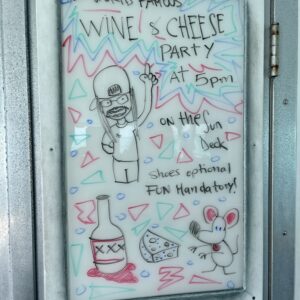 WORLD FAMOUS
WINE! & CHEESE
PARTY
AT 5pm
on the Sun
Deck
Shoes optional
FUN Mandatory!
XXX